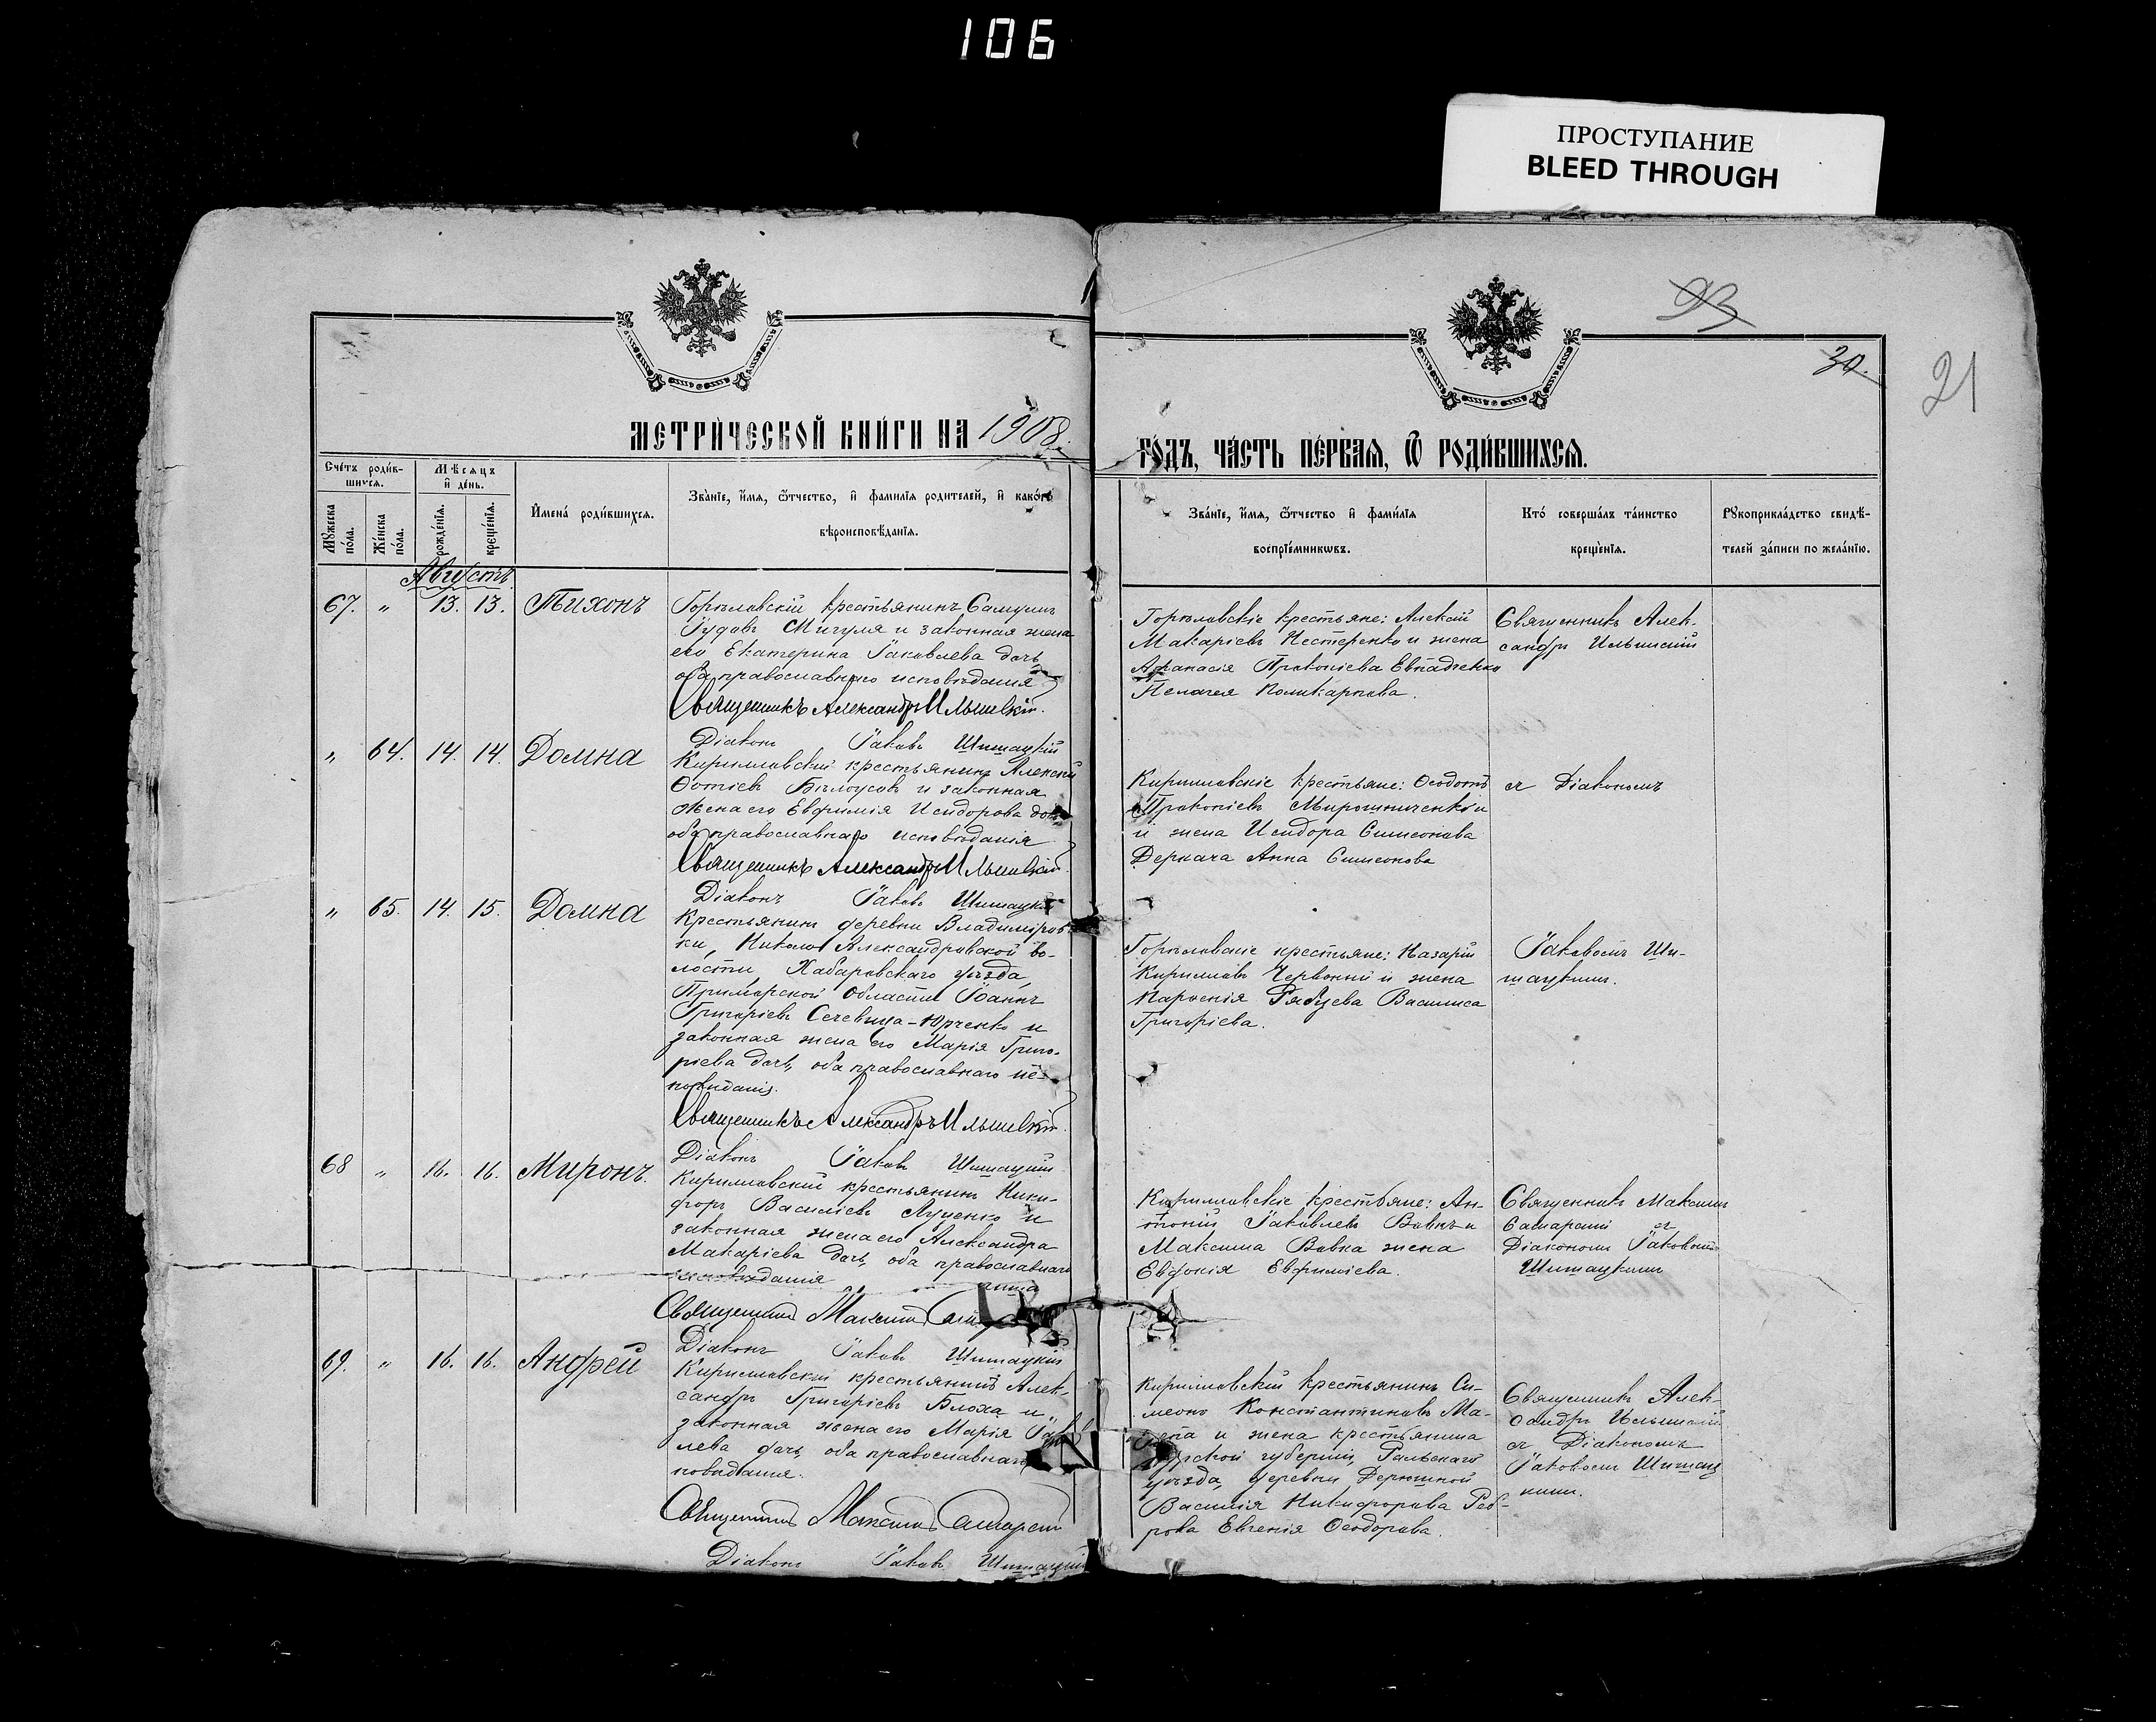 106
ПРОСТУПАНИЕ
BLEED THROUGH
93
30.
21
МЕТРИЧЕСКОЙ КНИГИ НА 1908.
ГОДЪ, ЧАСТЬ ПЕРВАЯ, Ѿ РОДИВШИХСЯ.
Счетъ родив-
шихся.
Мѣсяцъ
и день.
Мужеска
пола.
Женска
пола.
рожденія.
крещенія.
Имена родившихся.
Званіе, имя, ѿтчество, и фамилія родителей, и какогѡ
вѣроисповѣданія.
Званіе, имя, ѿтчество и фамилія
воспріемникѡвъ.
Кто совершалъ таинство
крещенія.
Рукоприкладство свидѣ-
телей записи по желанію.
Августъ
67. „ 13. 13. Тихонъ
Горѣловскій крестьянинъ Самуилъ
Іудовъ Мигуля и законная жена
его Екатерина Іаковлева дочь,
оба православнаго исповѣданія
Священникъ Александръ Ильинскій.
Діаконъ Іаковъ Шишацкій
Горѣловскіе крестьяне: Алексій
Макаріевъ Нестеренко и жена
Афанасія Прокопіева Евтадченко
Пелагея Поликарпова.
Священникъ Алек-
сандръ Ильинскій
„ 64. 14. 14. Домна
Кирилловскій крестьянинъ Алексій
Фотіевъ Бѣлоусовъ и законная
жена его Евфимія Исидорова дочь
оба православнаго исповѣданія
Священникъ Александръ Ильинскій.
Діаконъ Іаковъ Шишацкій
Кирилловскіе крестьяне: Ѳеодотъ
Прокопіевъ Мирошниченко и
и жена Исидора Симеонова
Деркача Анна Симеонова
съ Діакономъ
„ 65. 14. 15. Домна
Крестьянинъ деревни Владиміров-
ки, Николо Александровской во-
лости, Хабаровскаго уѣзда,
Приморской области Іоаннъ
Григоріевъ Сечевица-Юрченко и
законная жена его Марія Григо-
ріева дочь, оба православнаго ис-
повѣданія.
Священникъ Александръ Ильинскій.
Діаконъ Іаковъ Шишацкій
Горѣловскіе крестьяне: Назарій
Кирилловъ Червонный и жена
Парѳенія Рябцева Василиса
Григоріева.
Іаковомъ Ши-
шацкимъ.
68 „ 16. 16. Миронъ.
Кирилловскій крестьянинъ Ники-
форъ Василіевъ Луценко и
законная жена его Александра
Макаріева дочь, оба православнаго
исповѣданія
Священникъ Максимъ
Діаконъ Іаковъ Шишацкій
Кирилловскіе крестьяне: Ан-
тоній Іаковлевъ Вовкъ и
Максима Вовка жена
Евдокія Евфиміева.
Священникъ Максимъ
Самарскій съ
Діакономъ Іаковомъ
Шишацкимъ
69. „ 16. 16. Андрей
Кирилловскій крестьянинъ Алек-
сандръ Григоріевъ Блоха и
законная жена его Марія
лева дочь, оба православнаго
повѣданія.
Священникъ Максимъ Самарскій
Діаконъ Іаковъ Шишацкій
Кирилловскій крестьянинъ Си-
меонъ Константиновъ
и жена крестьянина
Курской губерніи, Рыльскаго
уѣзда, деревни
Василія Никифорова Реб-
рова Евгенія Ѳеодорова.
Священникъ Алек-
сандръ Ильинскій
съ Діакономъ
Іаковомъ Шишац
кимъ.